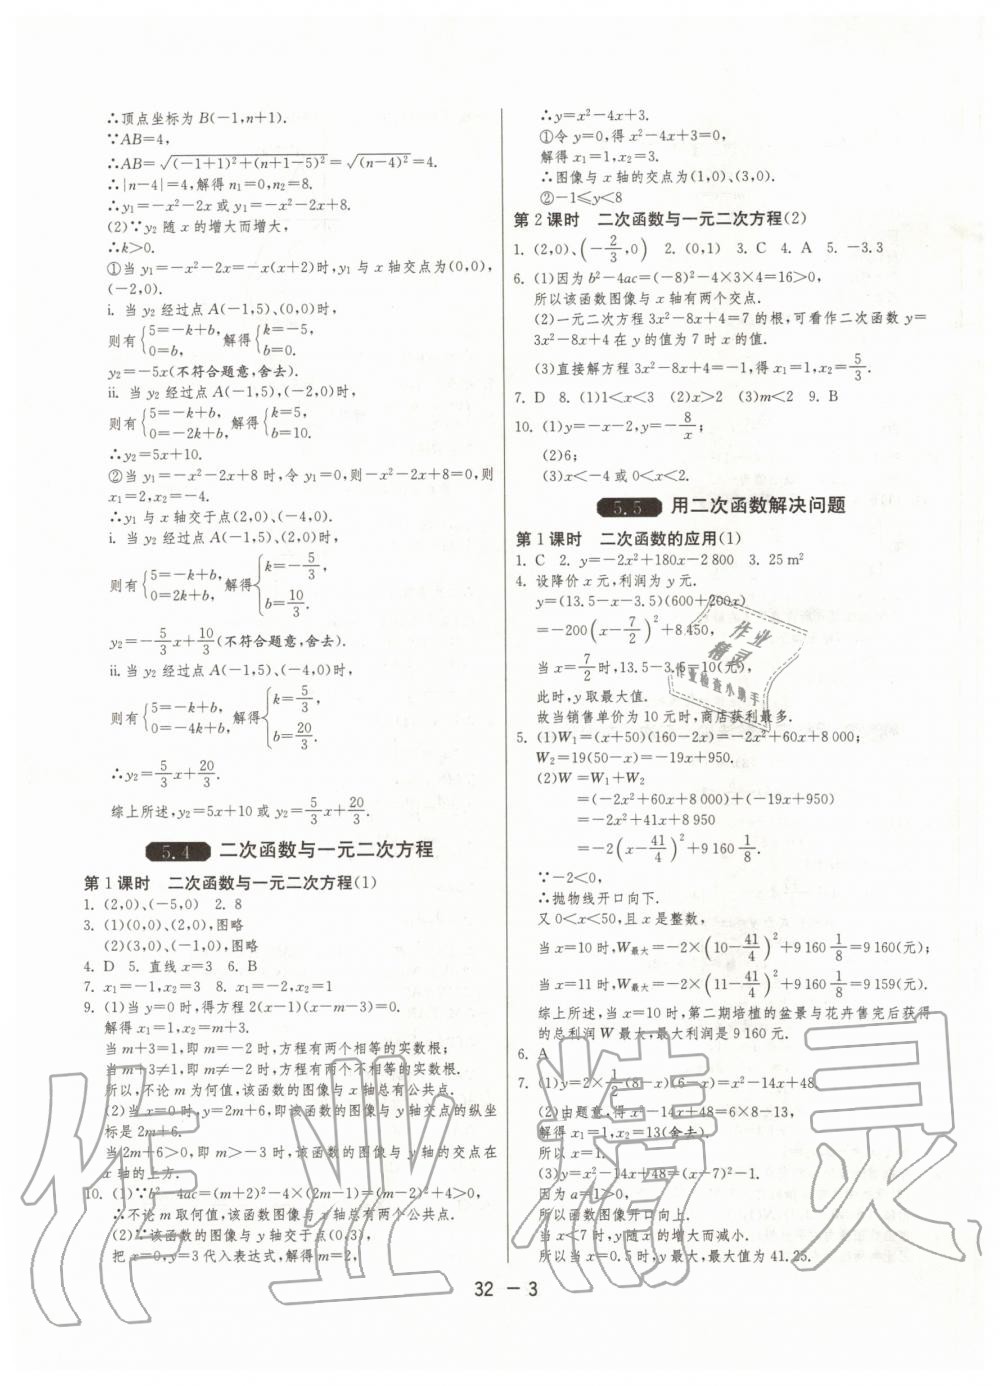 ∴顶点坐标为 B(-1,n+1).
∵AB=4,
∴AB=√((-1+1)²+(n+1-5)²)=√((n-4)²)=4.
∴|n-4|=4,解得 n₁=0,n₂=8.
∴y₁=-x²-2x 或 y₁=-x²-2x+8.
(2)∵y₂ 随 x 的增大而增大,
∴k>0.
①当 y₁=-x²-2x=-x(x+2)时,y₁ 与 x 轴交点为(0,0),
(-2,0).
i. 当 y₂ 经过点 A(-1,5)、(0,0)时,
则有{5=-k+b, 0=b, 解得{k=-5, b=0.
y₂=-5x(不符合题意,舍去).
ii. 当 y₂ 经过点 A(-1,5)、(-2,0)时,
则有{5=-k+b, 0=-2k+b, 解得{k=5, b=10.
∴y₂=5x+10.
②当 y₁=-x²-2x+8 时,令 y₁=0,则-x²-2x+8=0,则
x₁=2,x₂=-4.
∴y₁ 与 x 轴交于点(2,0)、(-4,0).
i. 当 y₂ 经过点 A(-1,5)、(2,0)时,
则有{5=-k+b, 0=2k+b, 解得{k=-5/3, b=10/3.
y₂=-5/3x+10/3(不符合题意,舍去).
ii. 当 y₂ 经过点 A(-1,5)、(-4,0)时,
则有{5=-k+b, 0=-4k+b, 解得{k=5/3, b=20/3.
∴y₂=5/3x+20/3.
综上所述,y₂=5x+10 或 y₂=5/3x+20/3.
5.4 二次函数与一元二次方程
第 1 课时 二次函数与一元二次方程(1)
1. (2,0)、(-5,0) 2. 8
3. (1)(0,0)、(2,0),图略
(2)(3,0)、(-1,0),图略
4. D 5. 直线 x=3 6. B
7. x₁=-1,x₂=3 8. x₁=-2,x₂=1
9. (1)当 y=0 时,得方程 2(x-1)(x-m-3)=0.
解得 x₁=1,x₂=m+3.
当 m+3=1,即 m=-2 时,方程有两个相等的实数根;
当 m+3≠1,即 m≠-2 时,方程有两个不相等的实数根.
所以,不论 m 为何值,该函数的图像与 x 轴总有公共点.
(2)当 x=0 时,y=2m+6,即该函数的图像与 y 轴交点的纵坐
标是 2m+6.
当 2m+6>0,即 m>-3 时,该函数的图像与 y 轴的交点在
x 轴的上方.
10. (1)∵b²-4ac=(m+2)²-4×(2m-1)=(m-2)²+4>0,
∴不论 m 取何值,该函数图像与 x 轴总有两个公共点.
(2)∵该函数的图像与 y 轴交于点(0,3),
把 x=0,y=3 代入表达式,解得 m=2,
∴y=x²-4x+3.
①令 y=0,得 x²-4x+3=0,
解得 x₁=1,x₂=3.
∴图像与 x 轴的交点为(1,0)、(3,0).
②-1≤y<8
第 2 课时 二次函数与一元二次方程(2)
1. (2,0)、(-2/3,0) 2. (0,1) 3. C 4. A 5. -3.3
6. (1)因为 b²-4ac=(-8)²-4×3×4=16>0,
所以该函数图像与 x 轴有两个交点.
(2)一元二次方程 3x²-8x+4=7 的根,可看作二次函数 y=
3x²-8x+4 在 y 的值为 7 时 x 的值.
(3)直接解方程 3x²-8x+4=-1,得 x₁=1,x₂=5/3.
7. D 8. (1)1<x<3 (2)x>2 (3)m<2 9. B
10. (1)y=-x-2,y=-8/x;
(2)6;
(3)x<-4 或 0<x<2.
5.5 用二次函数解决问题
第 1 课时 二次函数的应用(1)
1. C 2. y=-2x²+180x-2 800 3. 25 m²
4. 设降价 x 元,利润为 y 元.
y=(13.5-x-3.5)(600+200x)
=-200(x-7/2)²+8 450,
当 x=7/2时,13.5-3.5=10(元),
此时,y 取最大值.
故当销售单价为 10 元时,商店获利最多.
5. (1)W₁=(x+50)(160-2x)=-2x²+60x+8 000;
W₂=19(50-x)=-19x+950.
(2)W=W₁+W₂
=(-2x²+60x+8 000)+(-19x+950)
=-2x²+41x+8 950
=-2(x-41/4)²+9 160 1/8.
∵-2<0,
∴抛物线开口向下.
又 0<x<50,且 x 是整数,
当 x=10 时,W最大=-2×(10-41/4)²+9 160 1/8=9 160(元);
当 x=11 时,W最大=-2×(11-41/4)²+9 160 1/8=9 159(元).
综上所述,当 x=10 时,第二期培植的盆景与花卉售完后获得
的总利润 W 最大,最大利润是 9 160 元.
6. A
7. (1)y=2×1/2(8-x)(6-x)=x²-14x+48.
(2)由题意,得 x²-14x+48=6×8-13,
解得 x₁=1,x₂=13(舍去).
所以 x=1.
(3)y=x²-14x+48=(x-7)²-1.
因为 a=1>0,
所以函数图像开口向上.
当 x<7 时,y 随 x 的增大而减小.
所以当 x=0.5 时,y 最大,最大值为 41.25.
32 - 3
作业
精灵
作业检查小助手
作业精灵